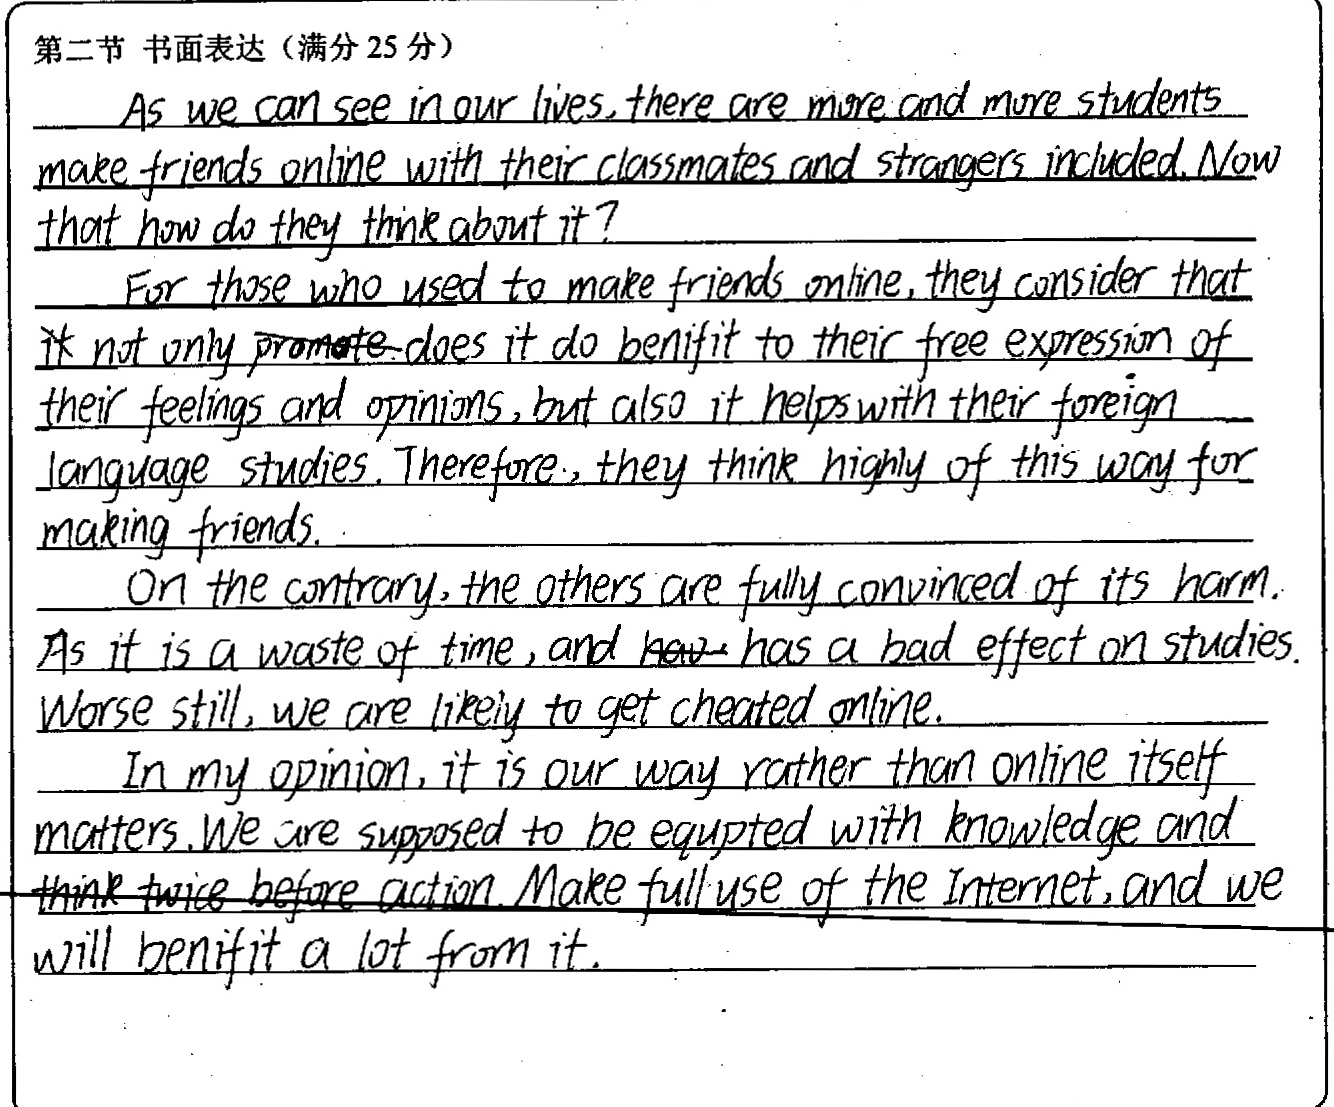 第二节 书面表达（满分 25 分）
As we can see in our lives, there are more and more students
make friends online with their classmates and strangers included. Now
that how do they think about it?
For those who used to make friends online, they consider that
it not only promote does it do benifit to their free expression of
their feelings and opinions, but also it helps with their foreign
language studies. Therefore, they think highly of this way for
making friends.
On the contrary, the others are fully convinced of its harm.
As it is a waste of time, and hav has a bad effect on studies.
Worse still, we are likely to get cheated online.
In my opinion, it is our way rather than online itself
matters. We are supposed to be equpted with knowledge and
think twice before action. Make full use of the Internet, and we
will benifit a lot from it.